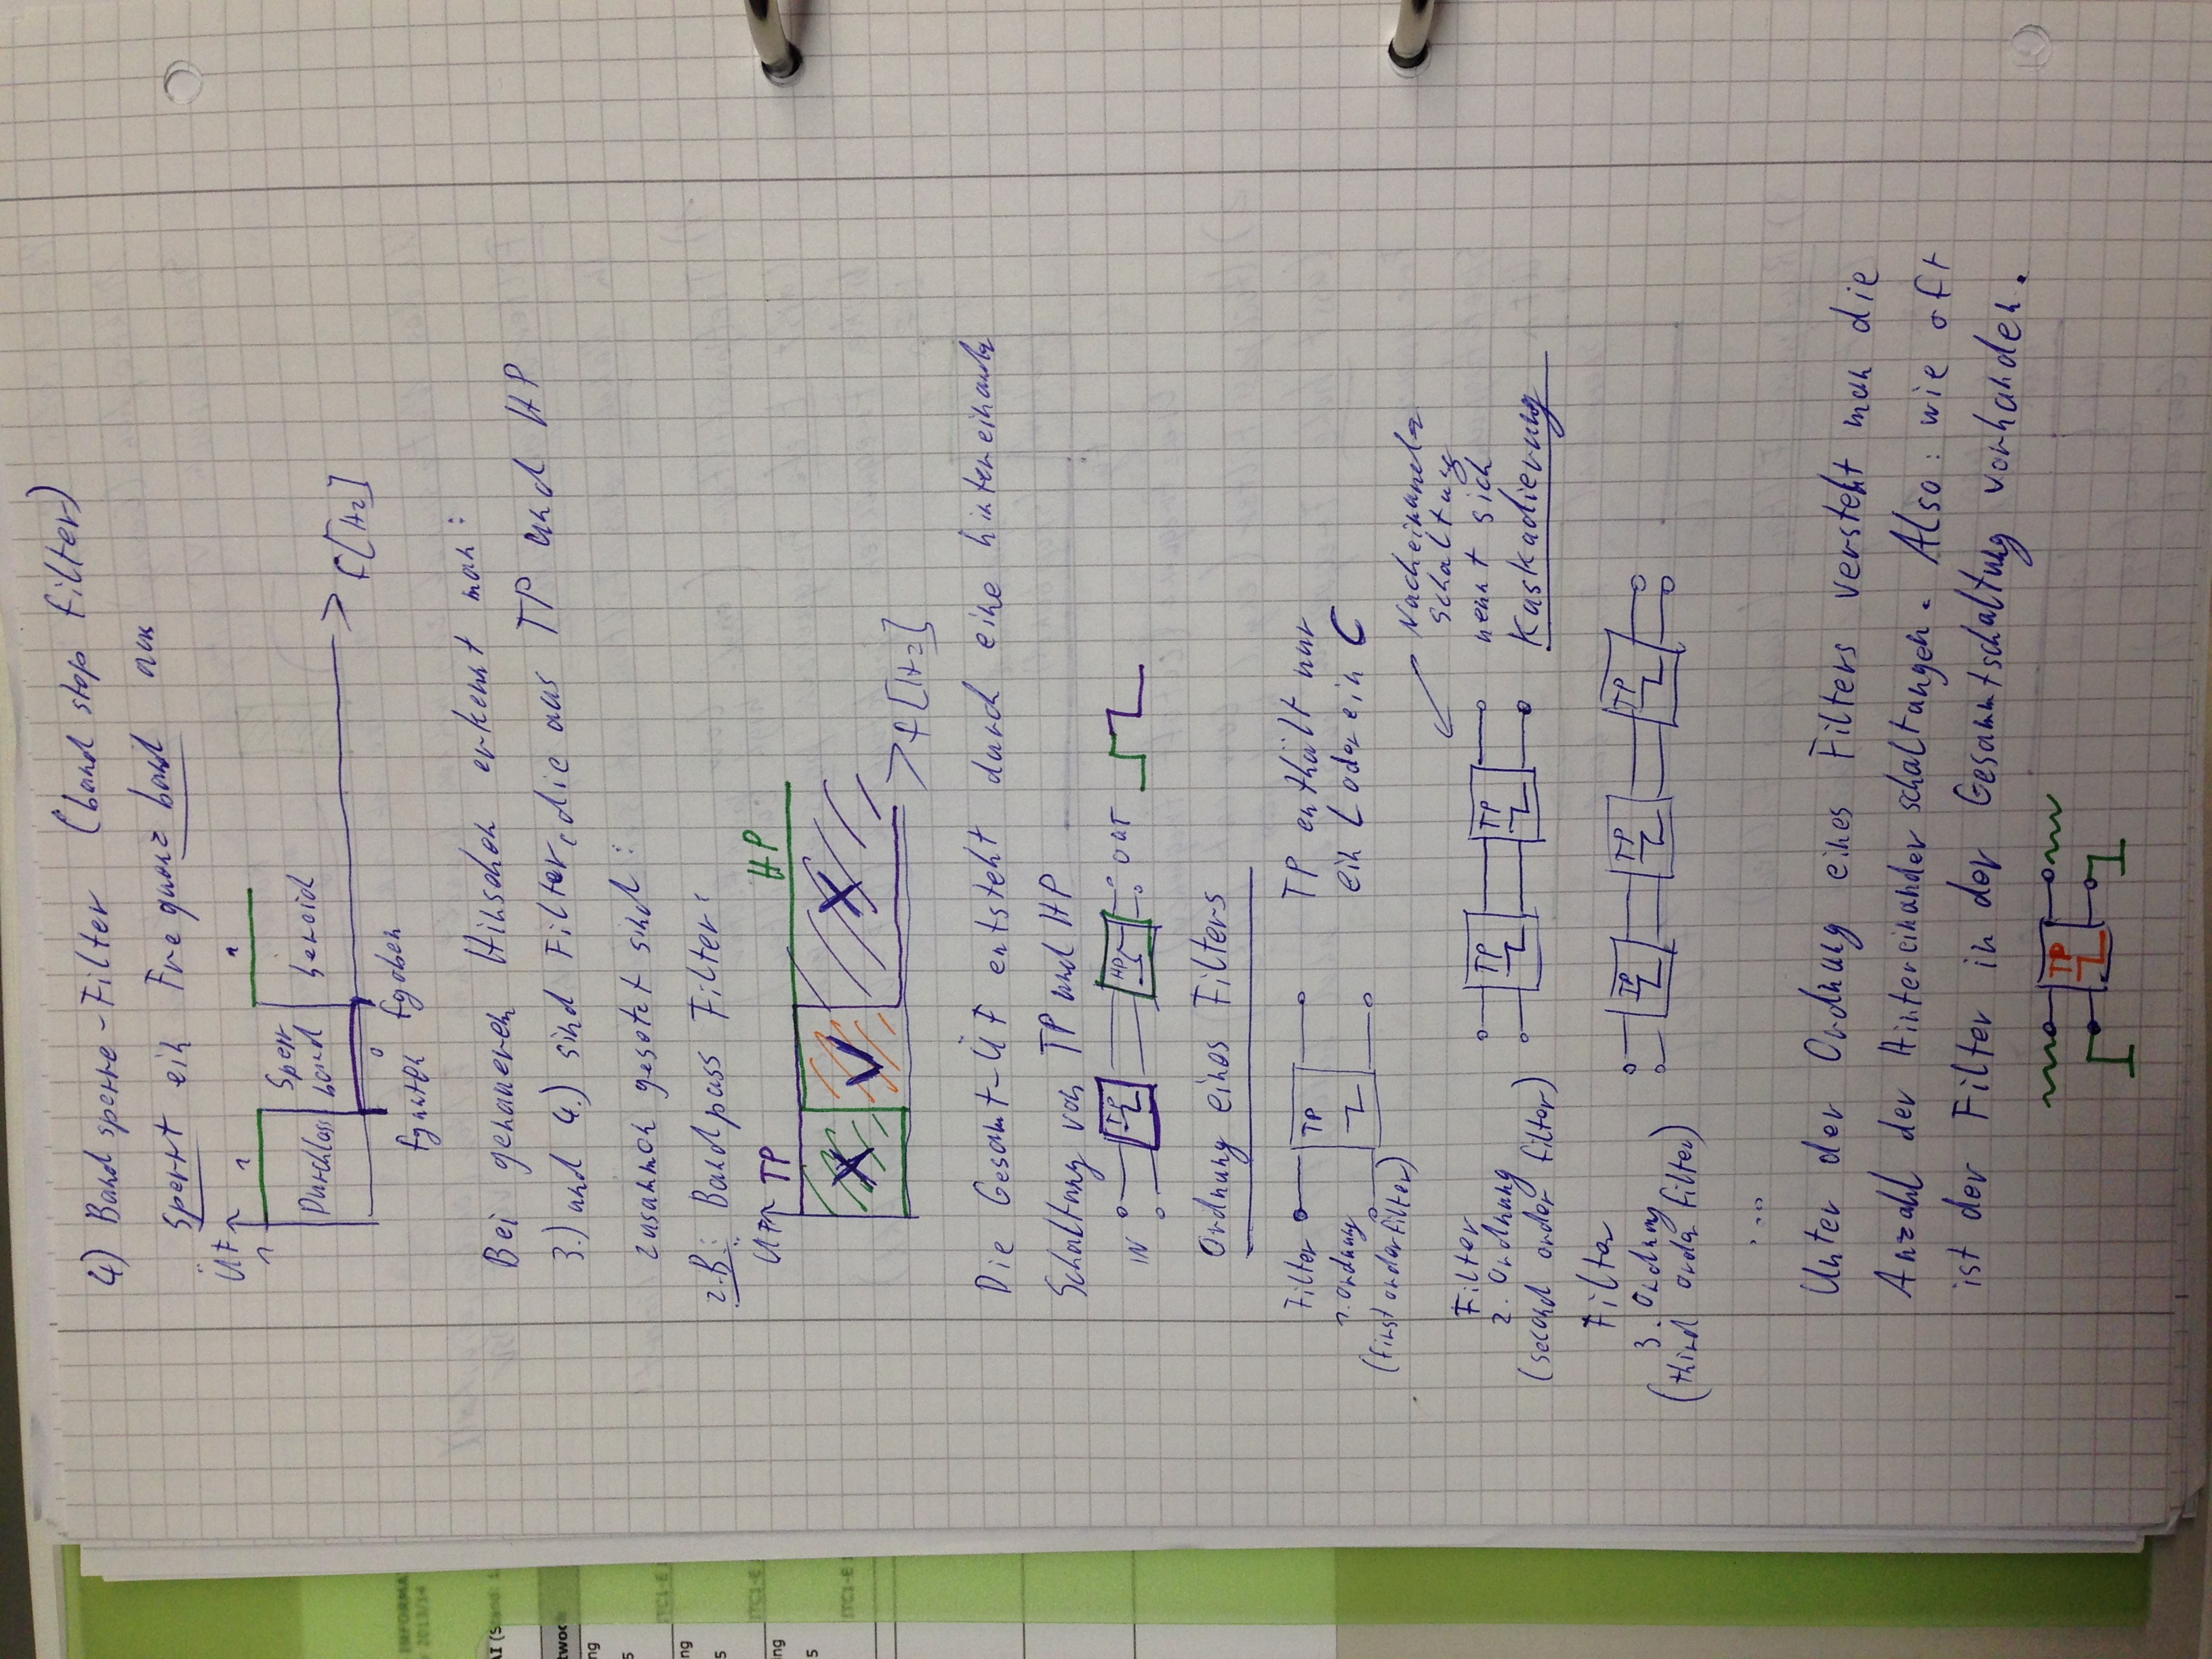 4) Bandsperre-Filter (band stop filter)
sperrt ein Frequenzband aus
ÜF
1
1
1
Durchlass
Sperr
band
bereich
f[Hz]
0
fgunten
fgoben
Bei genauerem Hinsehen erkennt man:
3.) und 4.) sind Filter, die aus TP und HP
zusammen gesetzt sind:
z.B.: Bandpass Filter:
ÜF TP HP
f[Hz]
Die Gesamt-ÜF entsteht durch eine hintereinander
Schaltung von TP und HP
IN TP HP OUT
Ordnung eines Filters
Filter
1. Ordnung
(first order filter)
TP
TP enthält nur
ein L oder ein C
Nacheinander
Schaltung
nennt sich
Kaskadierung
Filter
2. Ordnung
(second order filter)
TP TP
Filter
3. Ordnung
(third order filter)
TP TP TP
...
Unter der Ordnung eines Filters versteht man die
Anzahl der Hintereinanderschaltungen. Also: wie oft
ist der Filter in der Gesammtschaltung vorhanden.
TP
INFORMA
2013/14
AI (S
Stand: 1.
twoc
ng
5
ITC1-E
ng
5
ITC1-E
ng
5
ITC1-E